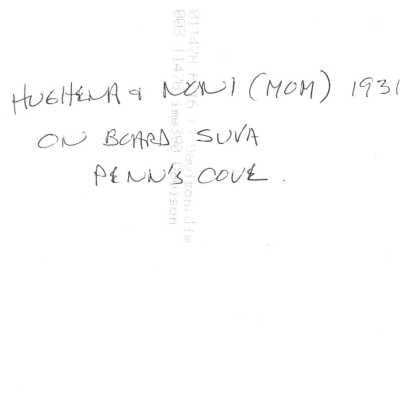 HUGHENA & NONI (MOM) 1931
ON BOARD SUVA
PENN'S COVE.